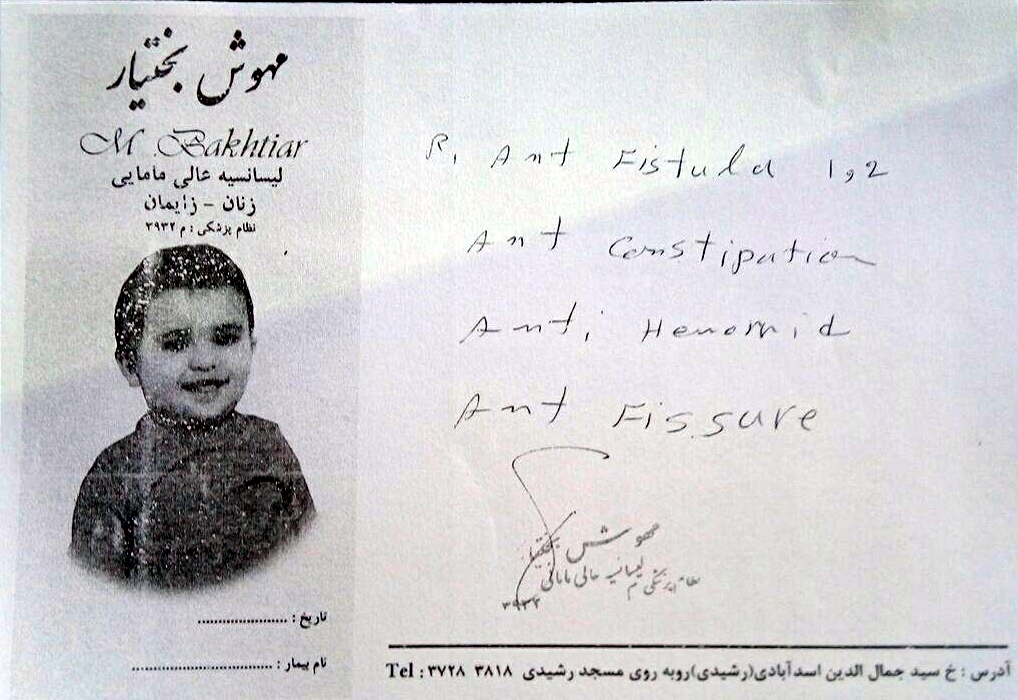 مهوش بختیار
M. Bakhtiar
لیسانسیه عالی مامایی
زنان - زایمان
نظام پزشکی : م ۳۹۳۲
تاریخ : ......................
نام بیمار : ...................................
R, Ant Fistula 1,2
Ant Constipation
Anti Hemorrid
Ant Fissure
مهوش بختیار
لیسانسیه عالی مامائی
نظام پزشکی م
۳۹۳۲
آدرس : خ سید جمال الدین اسدآبادی(رشیدی)روبه روی مسجد رشیدی Tel : ۳۷۲۸ ۳۸۱۸